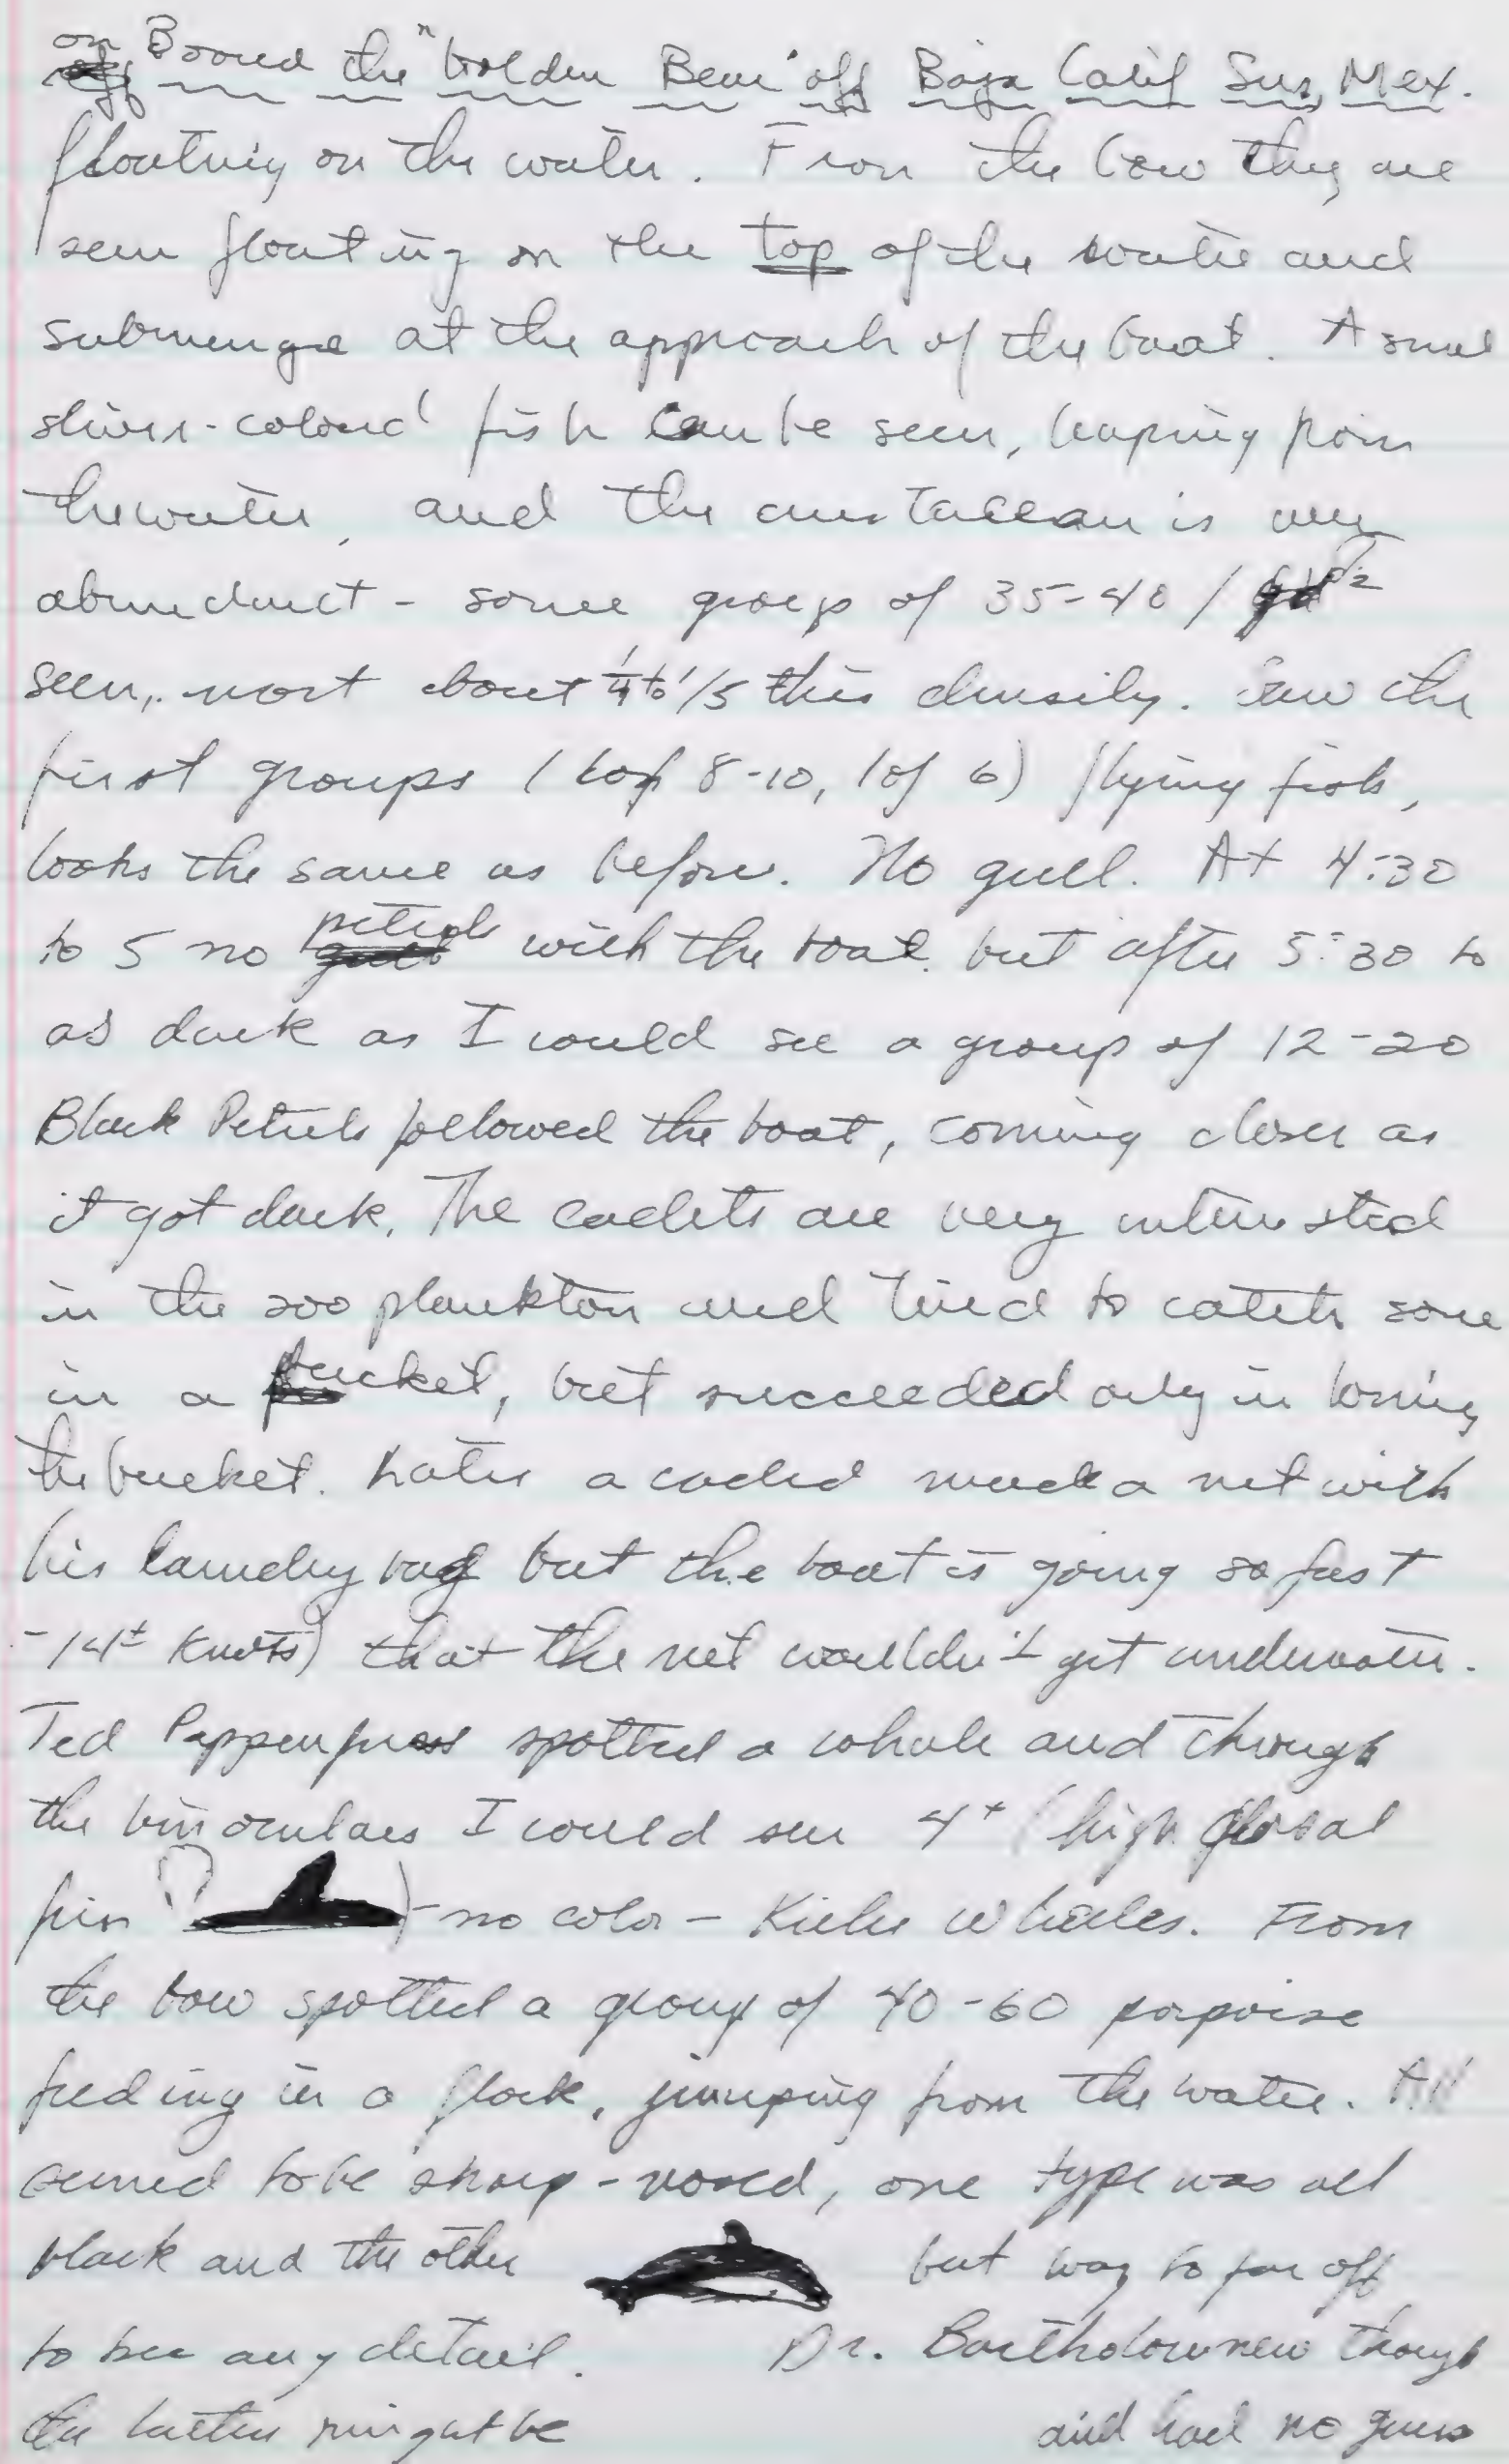 on Boored the "Golden Bear" off Baja Calif Sur, Mex.
floating on the water. From the bow they are
seen floating on the top of the water and
submerge at the approach of the boat. A smal
silver-colored fish can be seen, leaping from
the water, and the crustacean is very
abundant - some group of 35-40 /
seen, most about 1/4 to 1/5 this density. Saw the
first groups (1 of 8-10, 1 of 6) flying fish,
looks the same as before. No gull. At 4:30
to 5 no petrels with the boat. but after 5:30 to
as dark as I could see a group of 12-20
Black Petrels followed the boat, coming closer as
it got dark. The cadets are very interested
in the zooplankton and tried to catch some
in a bucket, but succeeded only in losing
the bucket. Later a caded made a net with
his laundry bag but the boat is going so fast
-14± knots) that the net wouldn't get underwater.
Ted Pappenfuss spotted a whale and through
the binoculars I could see 4+ (high dorsal
fin ) - no color - Killer Whales. From
the bow spotted a group of 40-60 porpoise
feeding in a flock, jumping from the water. All
seemed to be sharp-nosed, one type was all
black and the other but way to far off
to see any detail. Dr. Bartholomew though
the latter might be and had no guess